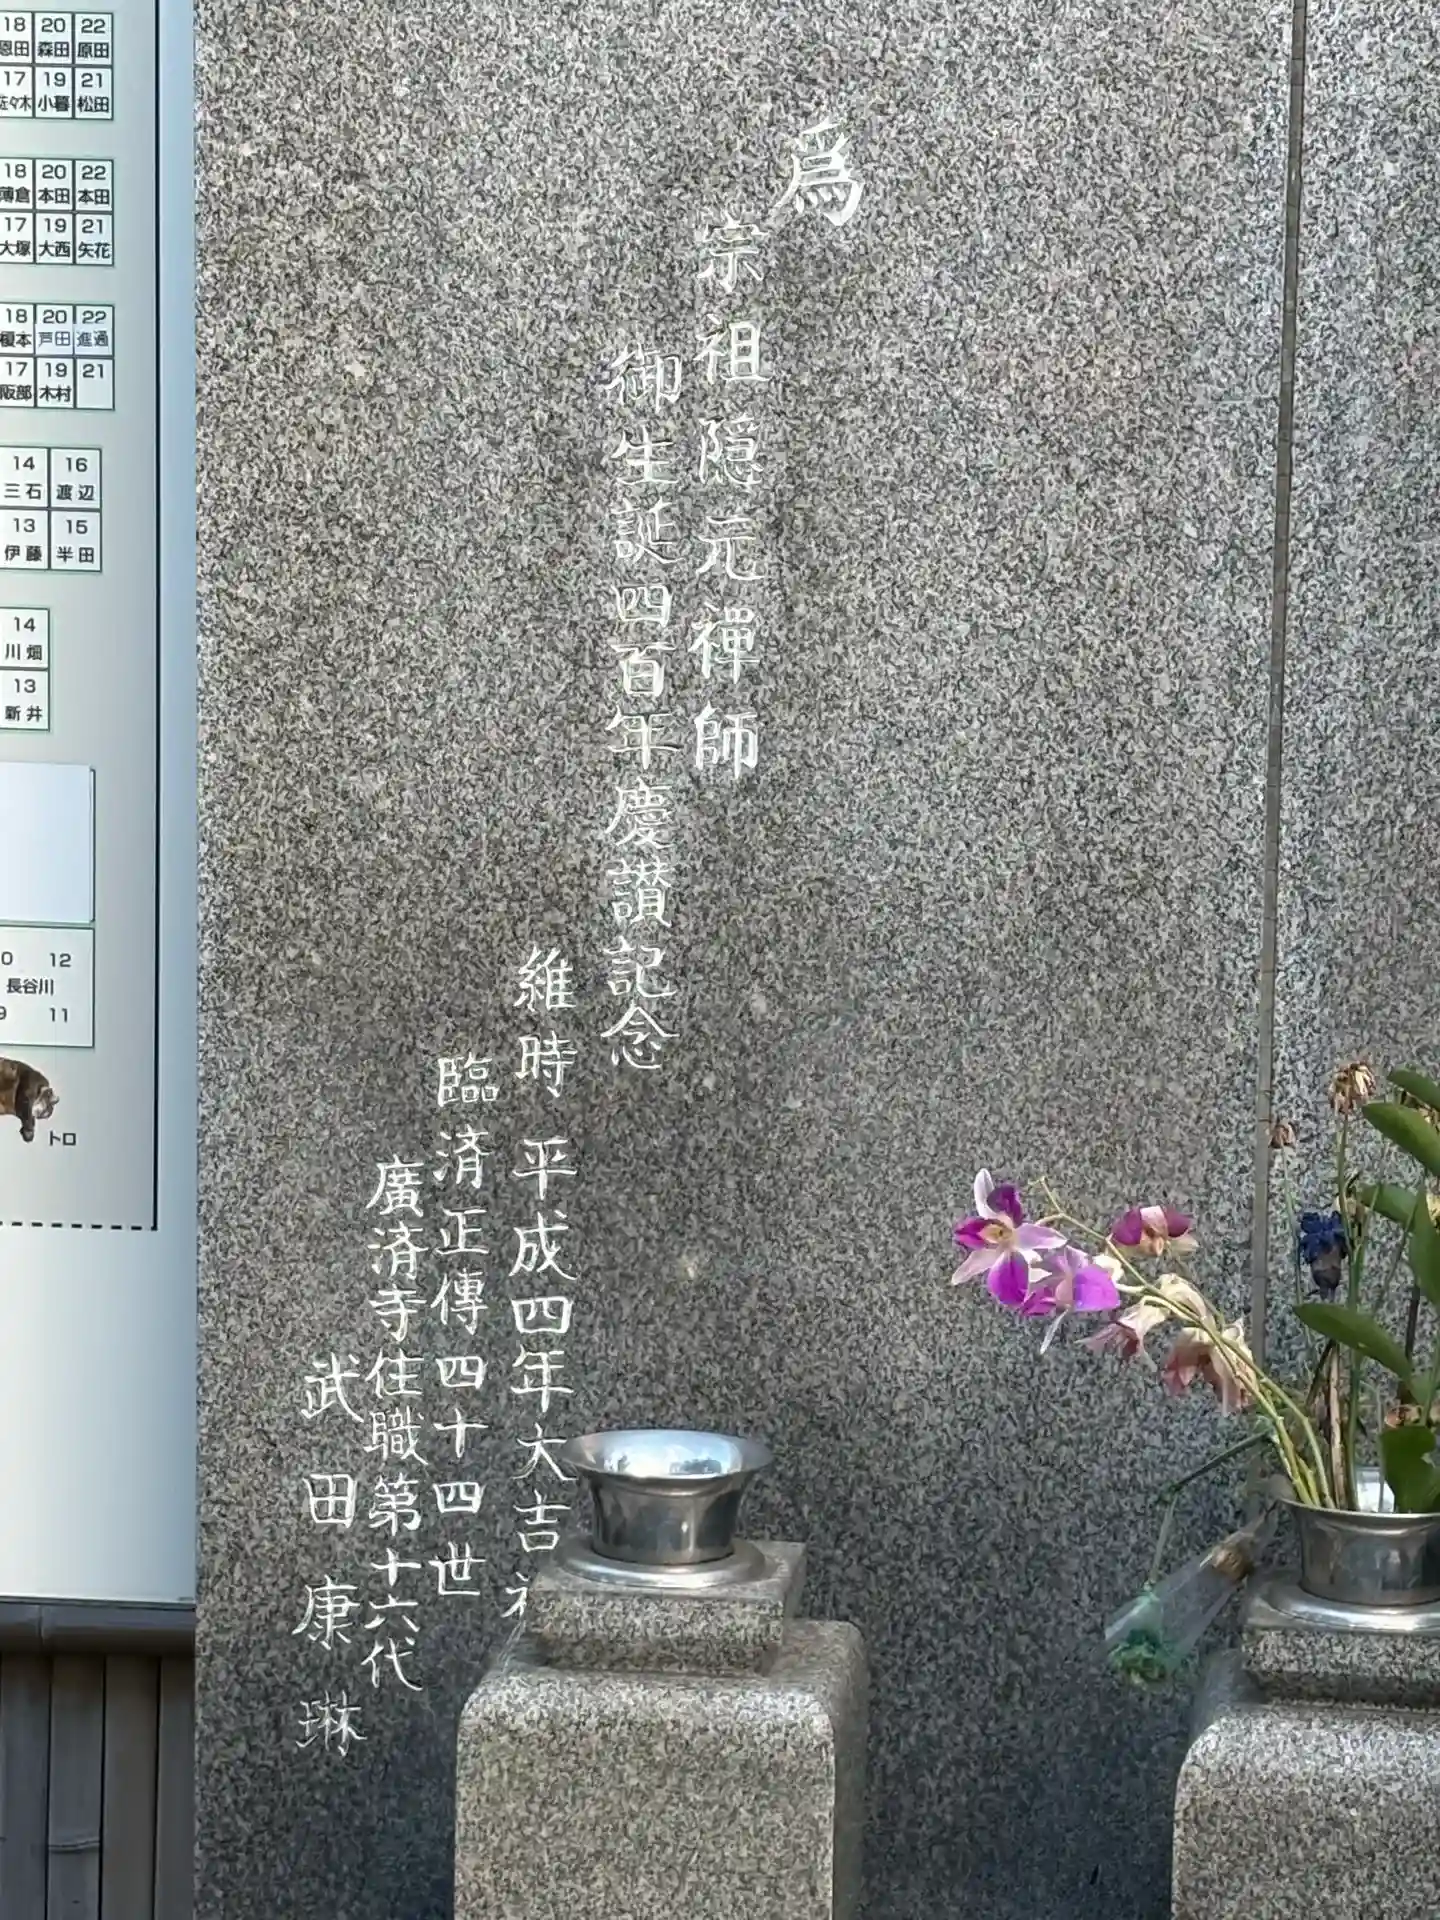 為
宗祖隠元禅師
御生誕四百年慶讃記念
維時 平成四年大吉
臨済正傳四十四世
廣済寺住職第十六代
武田康琳
18 20 22
恩田 森田 原田
17 19 21
佐々木 小暮 松田
18 20 22
薄倉 本田 本田
17 19 21
大塚 大西 矢花
18 20 22
榎本 芦田 進通
17 19 21
阪部 木村
14 16
三石 渡辺
13 15
伊藤 半田
14
川畑
13
新井
12
長谷川
9 11
トロ